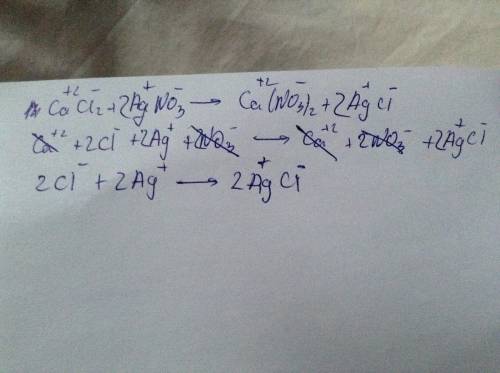 CaCl₂⁺²⁻ + 2Ag⁺NO₃⁻ → Ca⁺²(NO₃⁻)₂ + 2Ag⁺Cl⁻
Ca⁺² + 2Cl⁻ + 2Ag⁺ + 2NO₃⁻ → Ca⁺² + 2NO₃⁻ + 2Ag⁺Cl⁻
2Cl⁻ + 2Ag⁺ → 2Ag⁺Cl⁻